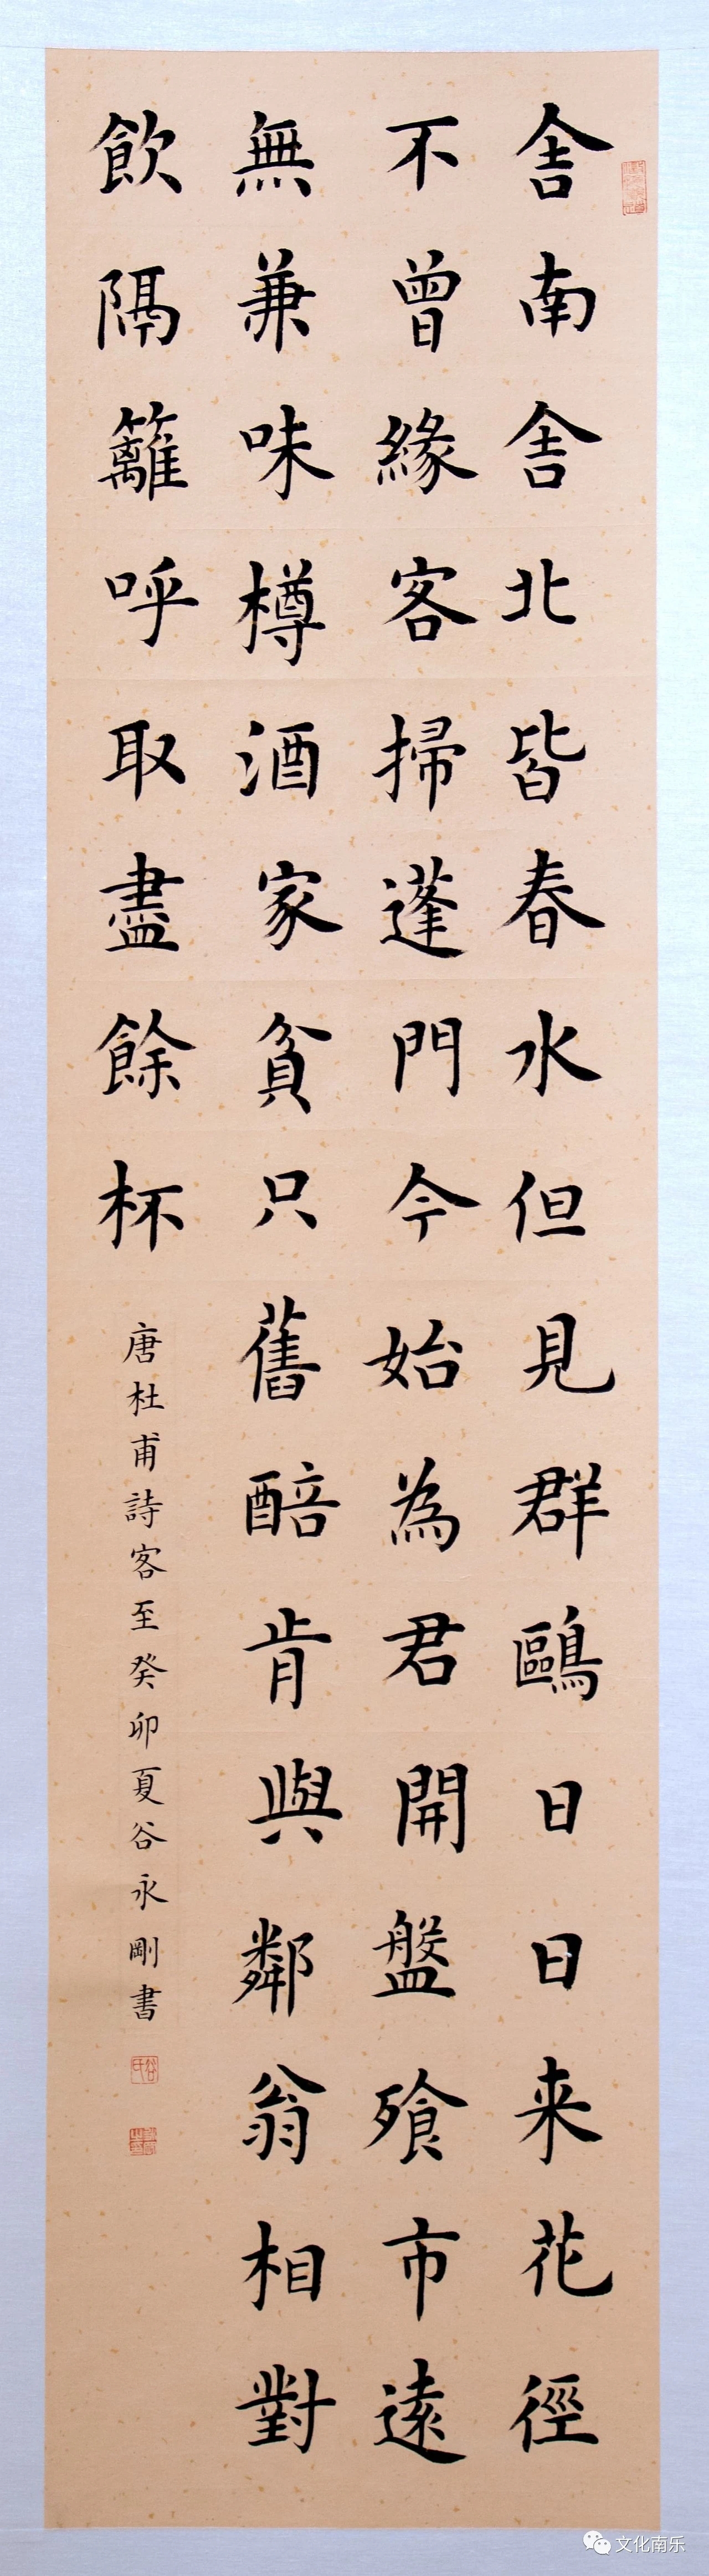 舍南舍北皆春水但見群鷗日日来花徑
不曾緣客掃蓬門今始為君開盤飱市遠
無兼味樽酒家貧只舊醅肯與鄰翁相對
飲隔籬呼取盡餘杯
唐杜甫詩客至癸卯夏谷永剛書
文化南乐